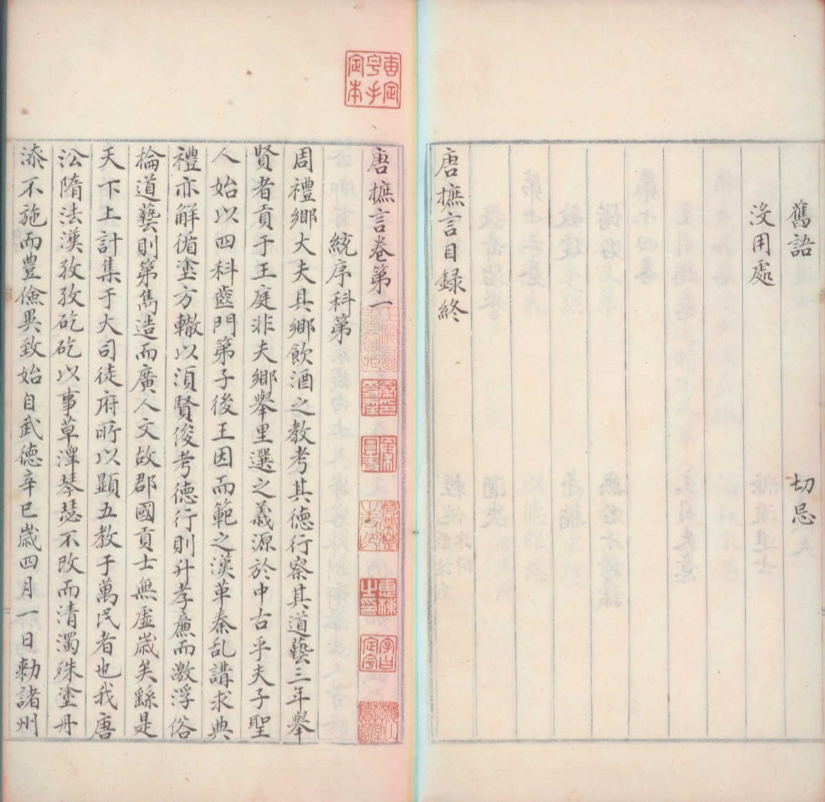 舊語　切忌
沒用處
唐摭言目録終
惠定宇手定本
唐摭言卷第一
統序科第
周禮鄉大夫具鄉飲酒之教考其德行察其道藝三年舉
賢者貢于王庭非夫鄉舉里選之義源於中古乎夫子聖
人始以四科齒門第子後王因而範之漢革秦亂講求典
禮亦解循塗方轍以須賢俊考德行則升孝廉而激浮俗
掄道藝則第雋造而廣人文故郡國貢士無虛歲矣繇是
天下上計集于大司徒府所以顯五教于萬民者也我唐
沿隋法漢孜孜矻矻以事草澤琴瑟不改而清濁殊塗丹
漆不施而豐儉異致始自武德辛巳歲四月一日勅諸州
惠棟之印
字曰定宇